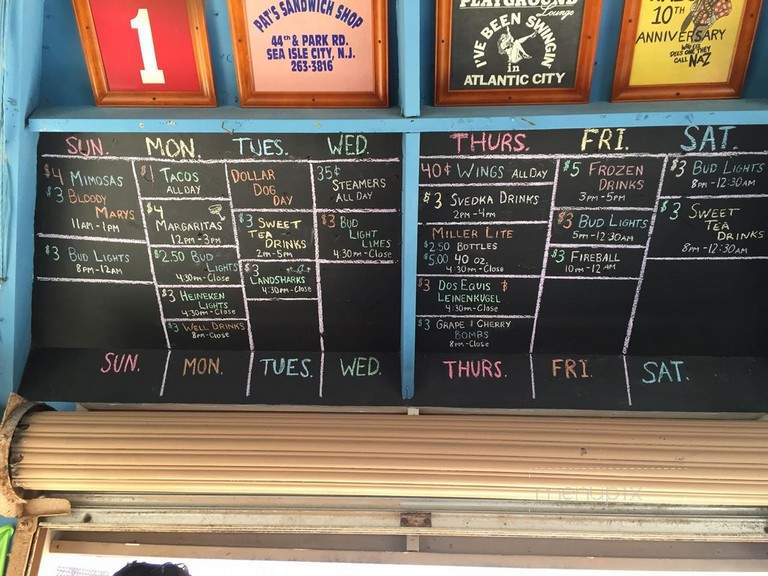 1
PAT'S SANDWICH SHOP
44th & PARK RD.
SEA ISLE CITY, N.J.
263-3816
PLAYGROUND
Lounge
I'VE BEEN SWINGIN'
in
ATLANTIC CITY
10TH
ANNIVERSARY
CALL NAZ
SUN.
$4 MIMOSAS
$3 BLOODY
MARYS
11AM-1PM
$3 BUD LIGHTS
8PM-12AM
MON.
$1 TACOS
ALL DAY
$4
MARGARITAS
12PM-3PM
$2.50 BUD
LIGHTS
4:30PM-CLOSE
$3 HEINEKEN
LIGHTS
4:30PM-CLOSE
$3 WELL DRINKS
8PM-CLOSE
TUES.
DOLLAR
DOG
DAY
$3 SWEET
TEA
DRINKS
2PM-5PM
$3
LANDSHARKS
4:30PM-CLOSE
WED.
35¢
STEAMERS
ALL DAY
$3 BUD
LIGHT
LIMES
4:30PM-CLOSE
THURS.
40¢ WINGS ALL DAY
$3 SVEDKA DRINKS
2PM-4PM
MILLER LITE
$2.50 BOTTLES
$5.00 40 OZ.
4:30PM-CLOSE
$3 DOS EQUIS &
LEINENKUGEL
4:30PM-CLOSE
$3 GRAPE & CHERRY
BOMBS
8PM-CLOSE
FRI.
$5 FROZEN
DRINKS
3PM-5PM
$3 BUD LIGHTS
5PM-12:30AM
$3 FIREBALL
10PM-12AM
SAT.
$3 BUD LIGHTS
8PM-12:30AM
$3 SWEET
TEA
DRINKS
8PM-12:30AM
SUN. MON. TUES. WED. THURS. FRI. SAT.
menupix